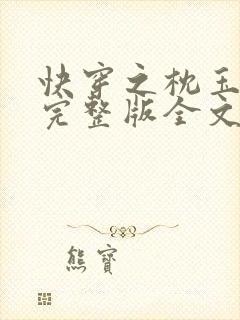 快穿之枕玉
完整版全文
熊寶